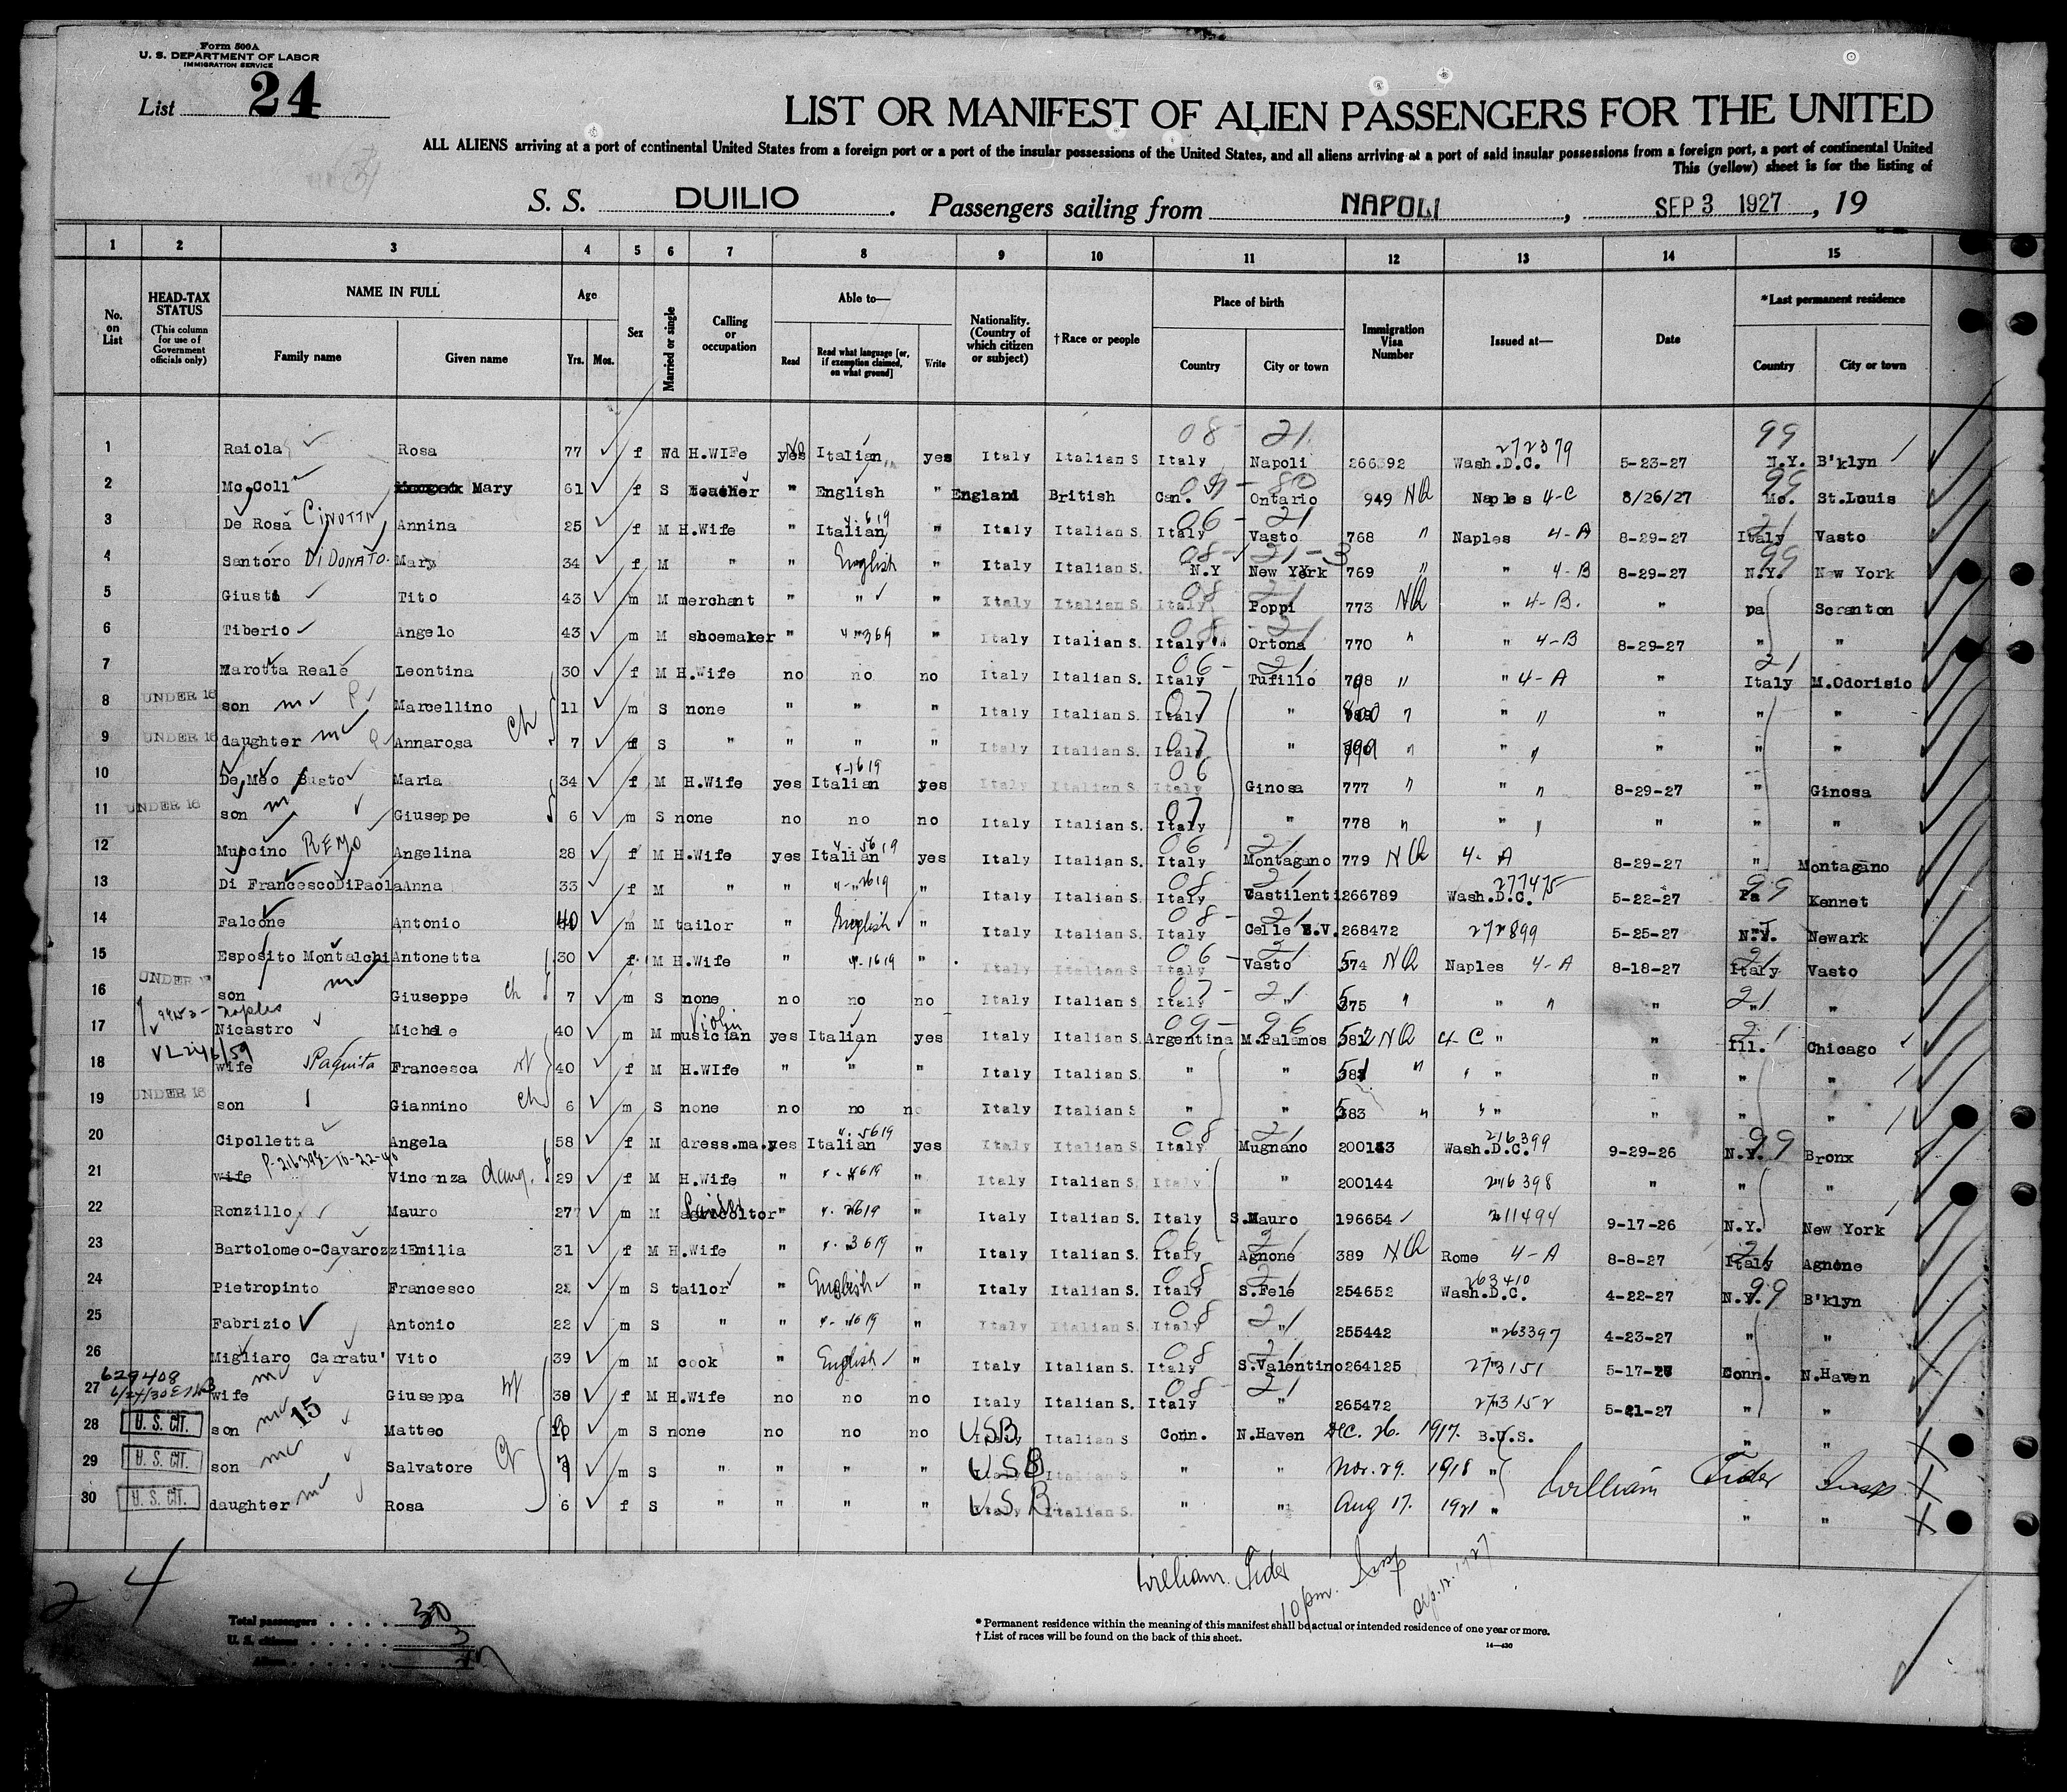 Form 500A
U. S. DEPARTMENT OF LABOR
IMMIGRATION SERVICE
List 24
LIST OR MANIFEST OF ALIEN PASSENGERS FOR THE UNITED
ALL ALIENS arriving at a port of continental United States from a foreign port or a port of the insular possessions of the United States, and all aliens arriving at a port of said insular possessions from a foreign port, a port of continental United
This (yellow) sheet is for the listing of
S. S. DUILIO. Passengers sailing from NAPOLI, SEP 3 1927, 19
1 2 3 4 5 6 7 8 9 10 11 12 13 14 15
No. on List
HEAD-TAX STATUS
(This column for use of Government officials only)
NAME IN FULL
Family name Given name
Age
Yrs. Mos.
Sex
Married or single
Calling or occupation
Able to—
Read
Read what language [or, if exemption claimed, on what ground]
Write
Nationality. (Country of which citizen or subject)
†Race or people
Place of birth
Country City or town
Immigration Visa Number
Issued at—
Date
*Last permanent residence
Country City or town
08 - 21 272379 99
1 Raiola Rosa 77 f Wd H.WIFe yes No Italian yes Italy Italian S Italy Napoli 266392 Wash.D.C. 5-23-27 N.Y. B'klyn
2 Mc.Coll Mary 61 f S teacher " English " England British Can. Ontario 949 NQ Naples 4-C 8/26/27 Mo. St.Louis
3 De Rosa CINOTTI Annina 25 f M H.Wife " Italian " Italy Italian S. Italy Vasto 768 " Naples 4-A 8-29-27 Italy Vasto
4 Santoro DI DONATO Mary 34 f M " " English " Italy Italian S. N.Y New York 769 " " 4-B 8-29-27 N.Y. New York
5 Giusti Tito 43 m M merchant " " " Italy Italian S. Italy Poppi 773 NQ " 4-B. " pa Scranton
6 Tiberio Angelo 43 m M shoemaker " " Italy Italian S. Italy Ortona 770 " " 4-B 8-29-27 " "
7 Marotta Reale Leontina 30 f M H.Wife no no no Italy Italian S. Italy Tufillo 798 " " 4-A " Italy M.Odorisio
8 UNDER 16 son Marcellino 11 m S none " " " Italy Italian S. Italy " 800 " " " " " "
9 UNDER 16 daughter Annarosa ch 7 f S " " " " Italy Italian S. Italy " 799 " " " " " "
10 De Meo Busto Maria 34 f M H.Wife yes Italian yes Italy Italian S. Italy Ginosa 777 " " " 8-29-27 " Ginosa
11 UNDER 16 son Giuseppe 6 m S none no no no Italy Italian S. Italy " 778 " " " " " "
12 Muccino REMO Angelina 28 f M H.Wife yes Italian yes Italy Italian S. Italy Montagano 779 NQ 4- A 8-29-27 " Montagano
13 Di FrancescoDiPaolaAnna 33 f M " " " Italy Italian S. Italy Castilenti 266789 Wash.D.C. 277475 5-22-27 Pa Kennet
14 Falcone Antonio 40 m M tailor " English " Italy Italian S. Italy Celle S.V. 268472 272899 5-25-27 N.J. Newark
15 Esposito Montalchi Antonetta 30 f M H.Wife " " Italy Italian S. Italy Vasto 574 NQ Naples 4-A 8-18-27 Italy Vasto
16 son Giuseppe ch 7 m S none no no no Italy Italian S. Italy " 575 " " " " "
Naples
17 Nicastro Michele 40 m M musician Violin yes Italian yes Italy Italian S. Argentina M.Palamos 582 NQ 4-C " " Ill. Chicago
18 wife Paquita Francesca wf 40 f M H.WIfe " " " Italy Italian S. " " 581 " " " " "
19 UNDER 16 son Giannino ch 6 m S none no no no Italy Italian S " " 583 " " " " " "
20 Cipolletta Angela 58 f M dress.ma. yes Italian yes Italy Italian S. Italy Mugnano 200143 Wash.D.C. 216399 9-29-26 N.Y. Bronx
P-216398-10-22-40
21 wife Vincenza daug. 29 f M H.Wife " " Italy Italian S. Italy " 200144 216398 " " "
22 Ronzillo Mauro 27 m M agricoltor " " Italy Italian S. Italy S.Mauro 196654 211494 9-17-26 N.Y. New York
23 Bartolomeo-Cavarozzi Emilia 31 f M H.Wife " " Italy Italian S. Italy Agnone 389 NQ Rome 4-A 8-8-27 Italy Agnone
24 Pietropinto Francesco 22 m S tailor " English " Italy Italian S. Italy S.Fele 254652 Wash.D.C. 263410 4-22-27 N.Y. B'klyn
25 Fabrizio Antonio 22 m S " " " Italy Italian S. Italy " 255442 " 263397 4-23-27 " "
26 Migliaro Carratu' Vito 39 m M cook " English " Italy Italian S. Italy S.Valentino 264125 273151 5-17-27 Conn. N.Haven
629408
27 wife Giuseppa wf 38 f M H.Wife no no no Italy Italian S. Italy " 265472 273152 5-21-27 " "
28 U. S. CIT. son 15 Matteo m S none no no no USB Italy Italian S Conn. N.Haven Dec. 26. 1917. B.U.S. " "
29 U. S. CIT. son Salvatore m S " " " " USB Italy Italian S " " Nov. 29. 1918 " "
30 U. S. CIT. daughter Rosa 6 f S " " " " USB Italy Italian S. " " Aug 17. 1921 " " "
William Fider Insp
William Fider Insp
10 pm. Sep. 12. 1927
24
Total passengers 30
U. S. citizens 3
Aliens 27
* Permanent residence within the meaning of this manifest shall be actual or intended residence of one year or more.
† List of races will be found on the back of this sheet.
14—430